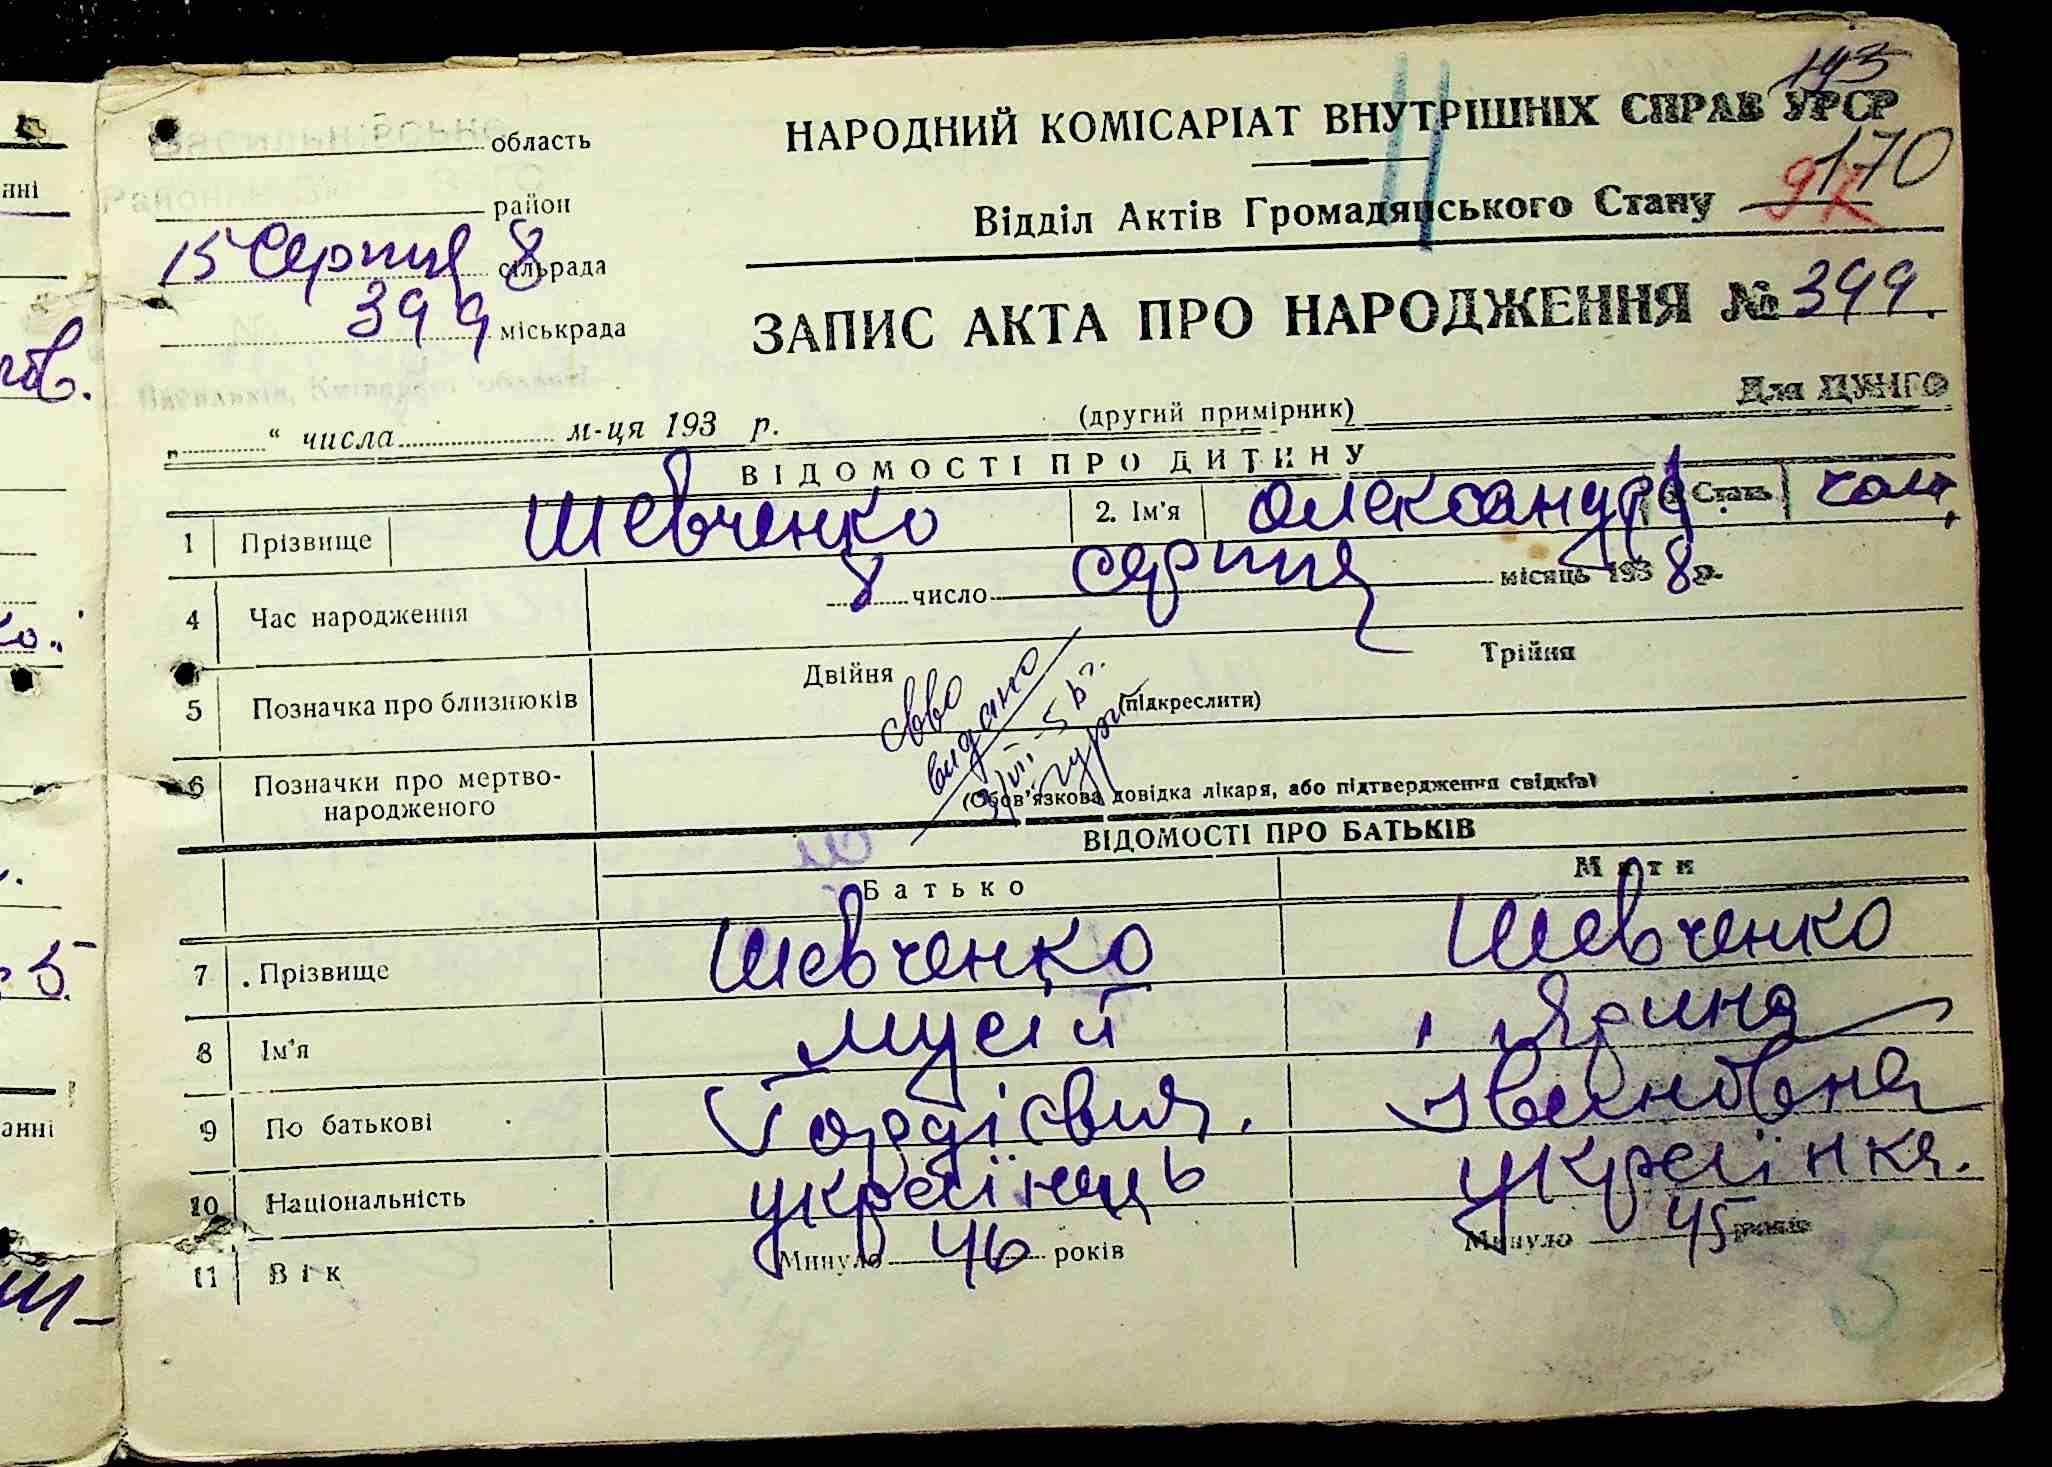 193
НАРОДНИЙ КОМІСАРІАТ ВНУТРІШНІХ СПРАВ УРСР
170
область
Відділ Актів Громадянського Стану
район
15 Серпня 8 сільрада
399 міськрада
ЗАПИС АКТА ПРО НАРОДЖЕННЯ № 399
Васильків, Київської області
(другий примірник)
Для ЦУНГО
„ “ числа м-ця 193 р.
ВІДОМОСТІ ПРО ДИТИНУ
1 Прізвище Шевченко 2. Ім'я Олександр 3 Стать чол.
4 Час народження 8 число серпня місяць 1938 р.
5 Позначка про близнюків Двійня Трійня
(підкреслити)
видано
6 Позначки про мертво-
народженого
(Обов'язкова довідка лікаря, або підтвердження свідків)
ВІДОМОСТІ ПРО БАТЬКІВ
Батько Мати
7 Прізвище Шевченко Шевченко
8 Ім'я Мусій Ярина
9 По батькові Гордієвич Івановна
10 Національність українець українка.
11 Вік Минуло 46 років Минуло 45 років
5
анні